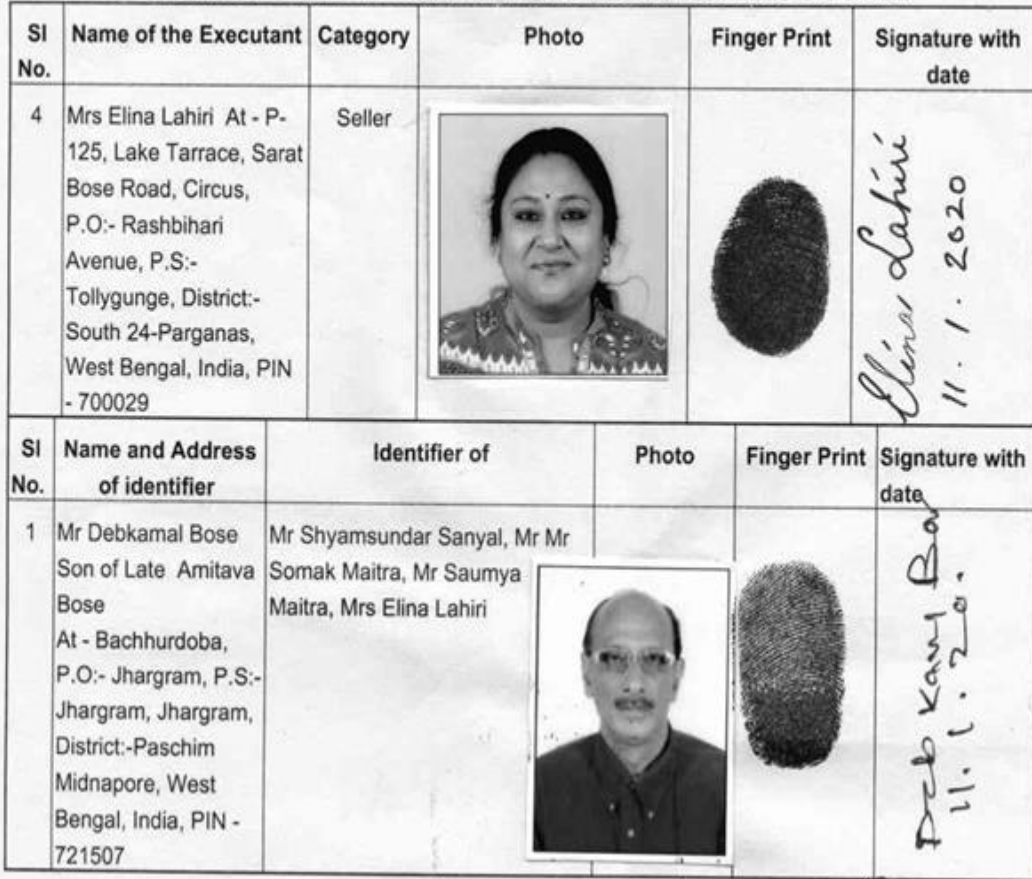 Sl No. Name of the Executant Category Photo Finger Print Signature with date
4 Mrs Elina Lahiri At - P-
125, Lake Tarrace, Sarat
Bose Road, Circus,
P.O:- Rashbihari
Avenue, P.S:-
Tollygunge, District:-
South 24-Parganas,
West Bengal, India, PIN
- 700029
Seller
Elina Lahiri
11.1.2020
Sl No. Name and Address of identifier Identifier of Photo Finger Print Signature with date
1 Mr Debkamal Bose
Son of Late Amitava
Bose
At - Bachhurdoba,
P.O:- Jhargram, P.S:-
Jhargram, Jhargram,
District:-Paschim
Midnapore, West
Bengal, India, PIN -
721507
Mr Shyamsundar Sanyal, Mr Mr
Somak Maitra, Mr Saumya
Maitra, Mrs Elina Lahiri
11.1.20.